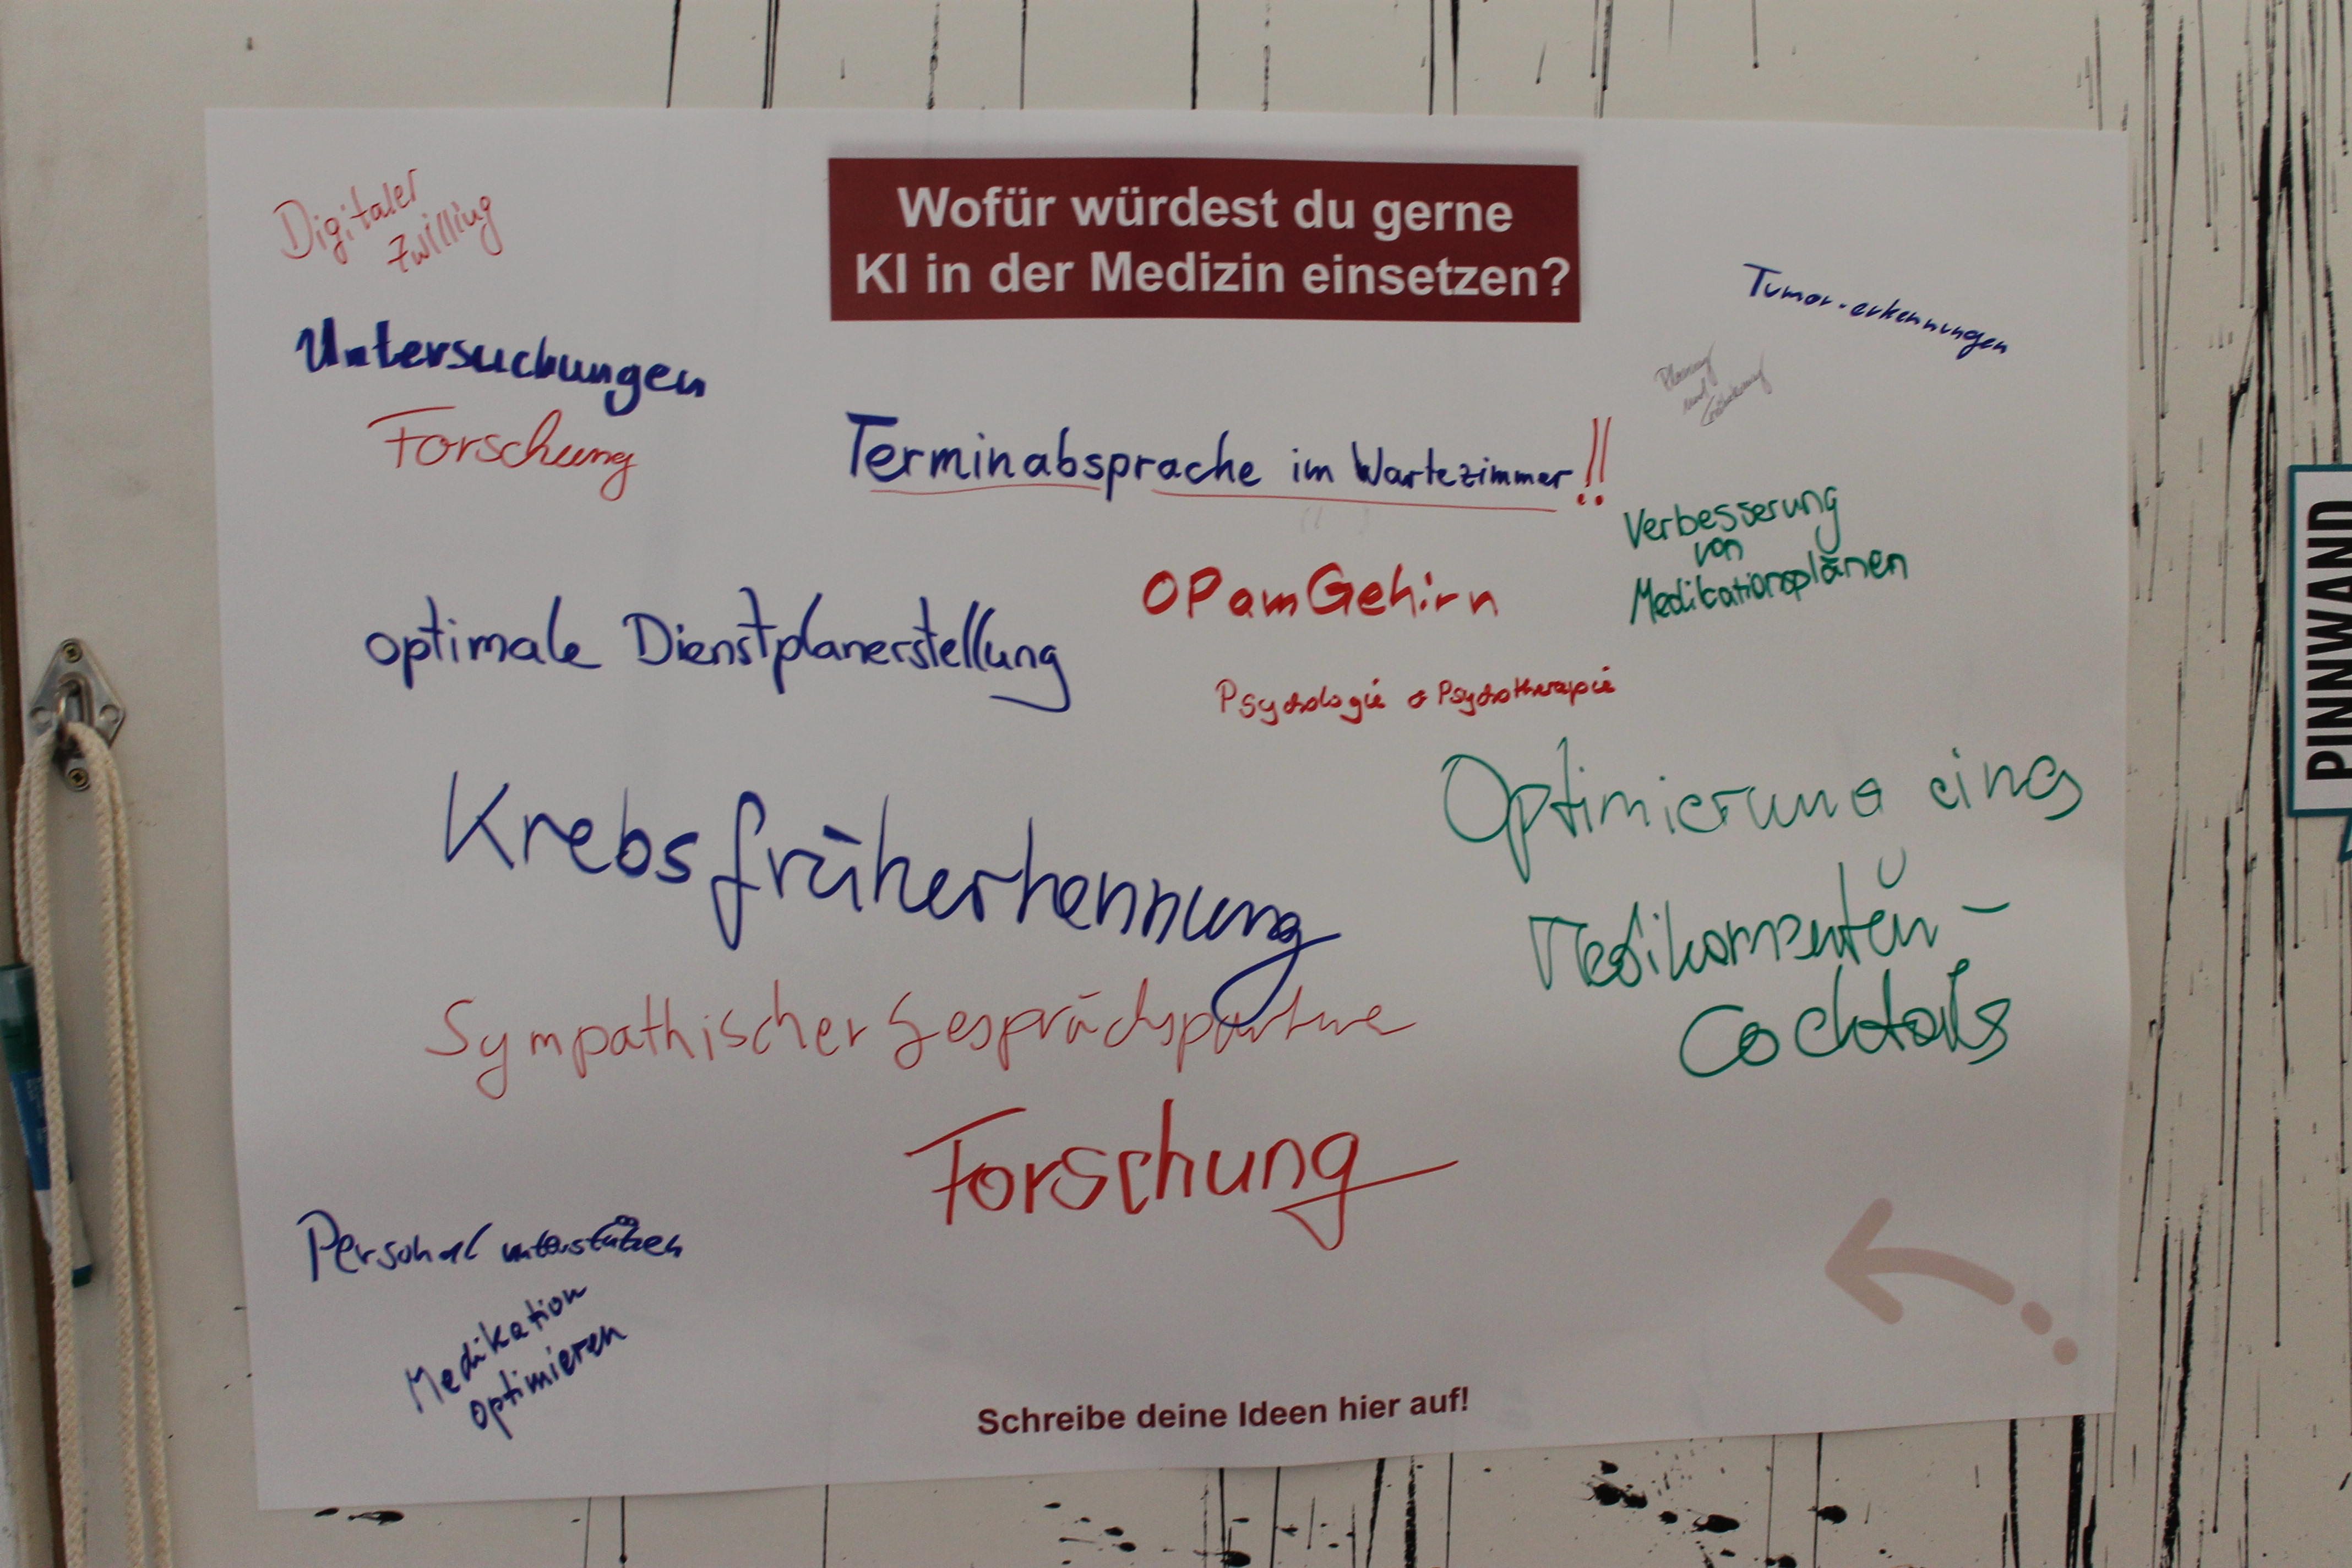 Wofür würdest du gerne
KI in der Medizin einsetzen?
Digitaler
Zwilling
Tumor-erkennungen
Untersuchungen
Forschung
Planung
und
Terminabsprache im Wartezimmer!!
Verbesserung
von
Medikationsplänen
OP am Gehirn
optimale Dienstplanerstellung
Psychologie & Psychotherapie
Optimierung eines
Medikamenten-
Cocktails
Krebsfrüherkennung
Sympathischer Gesprächspartner
Forschung
Personal unterstützen
Medikation
optimieren
Schreibe deine Ideen hier auf!
PINNWAND